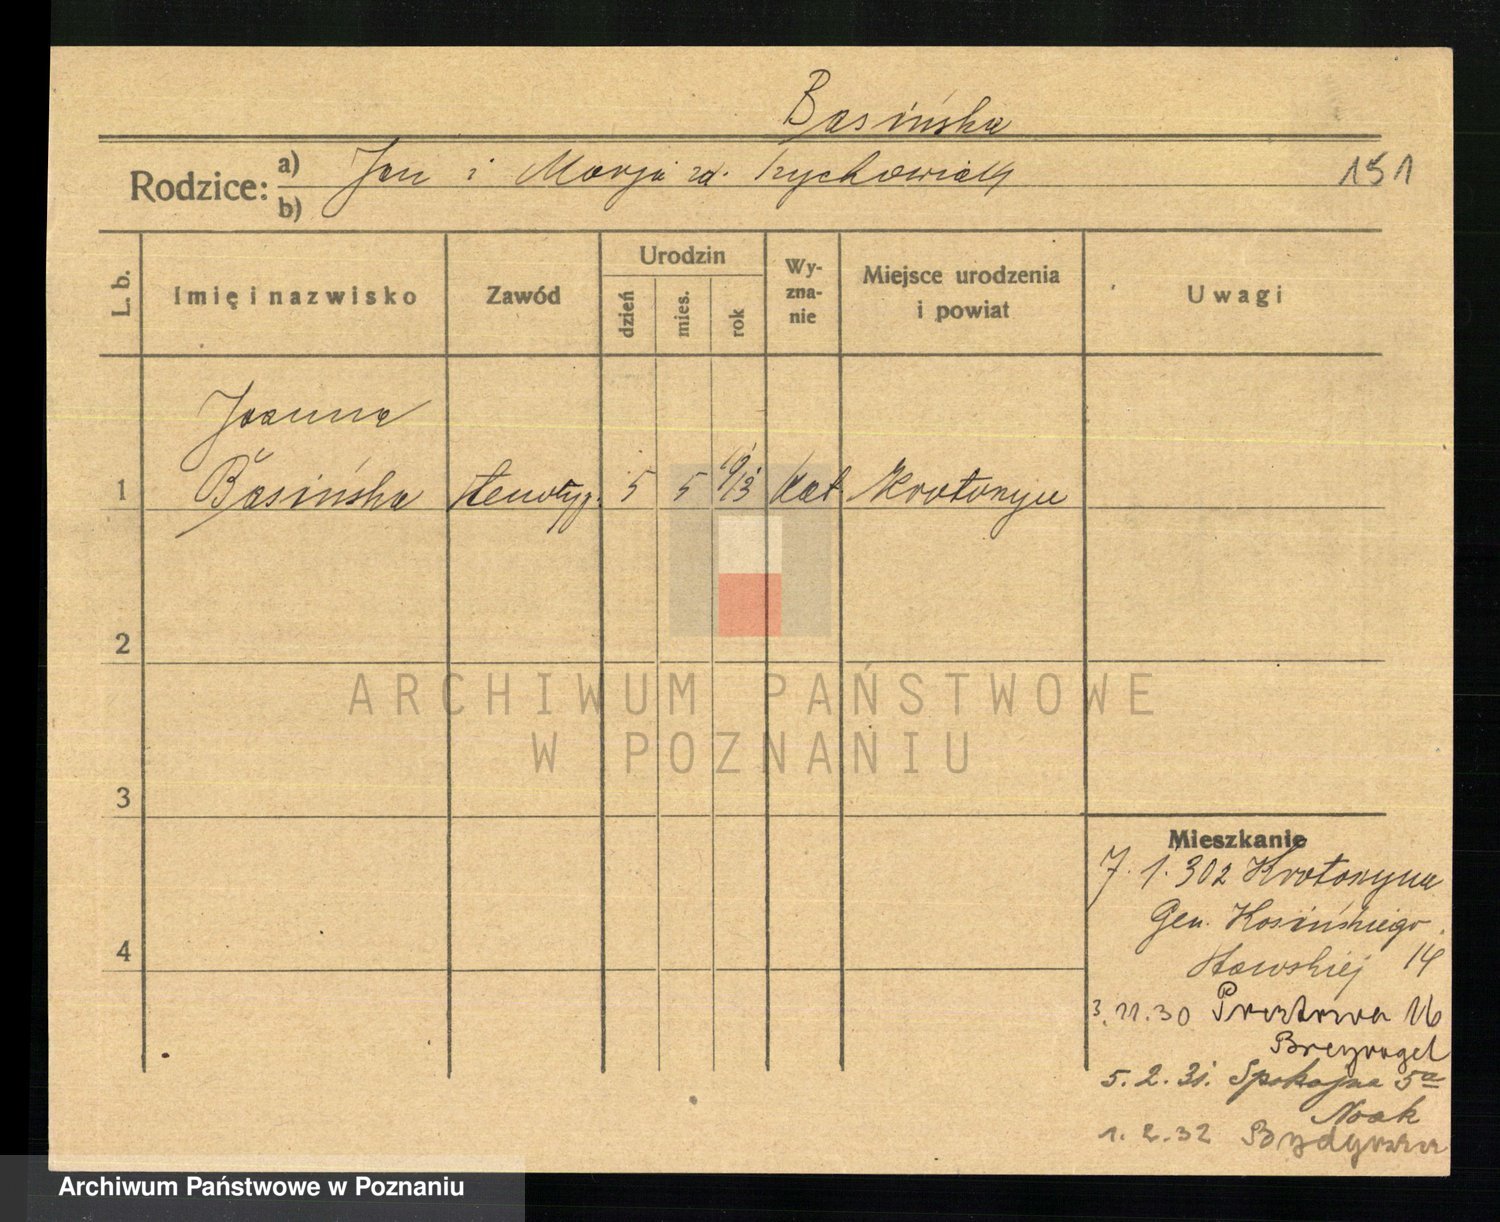 Basińska
Rodzice: a) Jan i Marja zd. Krychowiak 151
b)
L. b. Imię i nazwisko Zawód Urodzin dzień mies. rok Wy-zna-nie Miejsce urodzenia i powiat Uwagi
Joanna
1 Basińska stenotyp. 5 5 1913 kat. Krotoszyn
2
ARCHIWUM PAŃSTWOWE
W POZNANIU
3
Mieszkanie
7. 1. 30 z Krotoszyna
Gen. Kosińskiego
4
14
3. 11. 30 16
5. 2. 31. Spokojna 5a
Noak
1. 2. 32 Bydgoszcz
Archiwum Państwowe w Poznaniu